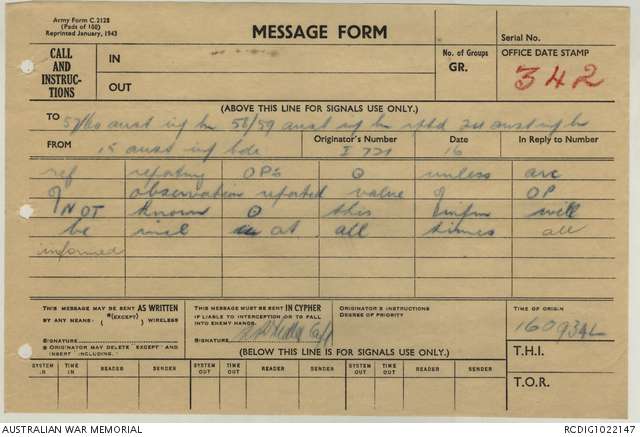 Army Form C.2128
(Pads of 100)
Reprinted January, 1943
MESSAGE FORM
Serial No.
CALL AND INSTRUC-TIONS
IN
OUT
No. of Groups
GR.
OFFICE DATE STAMP
342
(ABOVE THIS LINE FOR SIGNALS USE ONLY.)
TO 57/60 aust inf bn 58/59 aust inf bn rptd 24 aust inf bn
FROM 15 aust inf bde
Originator's Number
I 721
Date
16
In Reply to Number
ref reporting OPS ⊙ unless arc
of observation reported value of OP
NOT known ⊙ this infm will
be incl in at all times all
informed
THIS MESSAGE MAY BE SENT AS WRITTEN
BY ANY MEANS. (*(EXCEPT) ) WIRELESS
SIGNATURE
* ORIGINATOR MAY DELETE EXCEPT AND INSERT INCLUDING.
THIS MESSAGE MUST BE SENT IN CYPHER
IF LIABLE TO INTERCEPTION OR TO FALL INTO ENEMY HANDS.
SIGNATURE Capt
ORIGINATOR'S INSTRUCTIONS
DEGREE OF PRIORITY
TIME OF ORIGIN
160934L
(BELOW THIS LINE IS FOR SIGNALS USE ONLY.)
T.H.I.
T.O.R.
SYSTEM IN TIME IN READER SENDER SYSTEM OUT TIME OUT READER SENDER SYSTEM OUT TIME OUT READER SENDER
AUSTRALIAN WAR MEMORIAL
RCDIG1022147